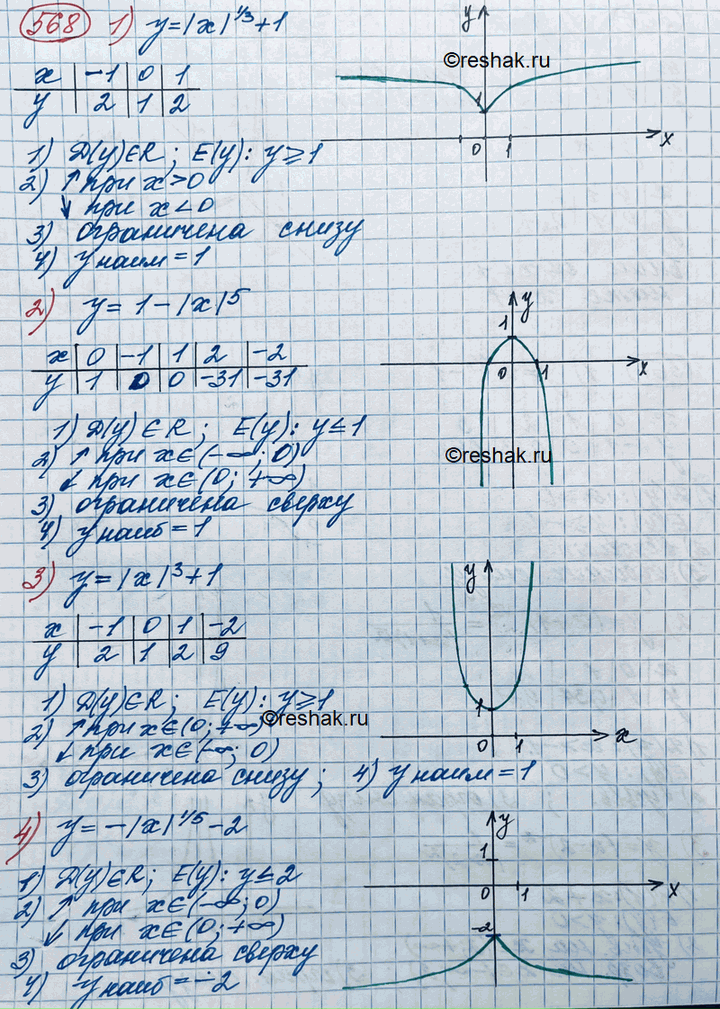 568 1) y=|x|^1/3+1
x | -1 | 0 | 1
y | 2 | 1 | 2
y
1
0 1 x
©reshak.ru
1) D(y)∈R; E(y): y≥1
2) ↑ при x>0
↓ при x<0
3) ограничена снизу
4) y наим = 1
2) y= 1-|x|^5
x | 0 | -1 | 1 | 2 | -2
y | 1 | 0 | 0 | -31 | -31
y
1
0 1 x
©reshak.ru
1) D(y)∈R; E(y): y≤1
2) ↑ при x∈(-∞; 0)
↓ при x∈(0; +∞)
3) ограничена сверху
4) y наиб = 1
3) y=|x|^3+1
x | -1 | 0 | 1 | -2
y | 2 | 1 | 2 | 9
y
1
0 1 x
1) D(y)∈R; E(y): y≥1
2) ↑ при x∈(0; +∞)
©reshak.ru
↓ при x∈(-∞; 0)
3) ограничена снизу; 4) y наим = 1
4) y=-|x|^1/5-2
y
1
0 1 x
-2
1) D(y)∈R; E(y): y≤2
2) ↑ при x∈(-∞; 0)
↓ при x∈(0; +∞)
3) ограничена сверху
4) y наиб = -2